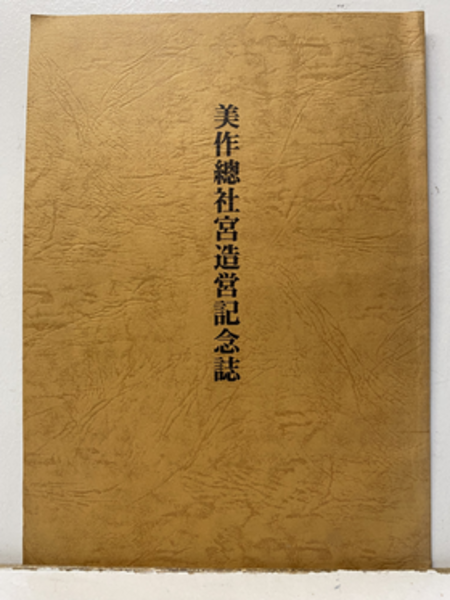 美作總社宮造営記念誌